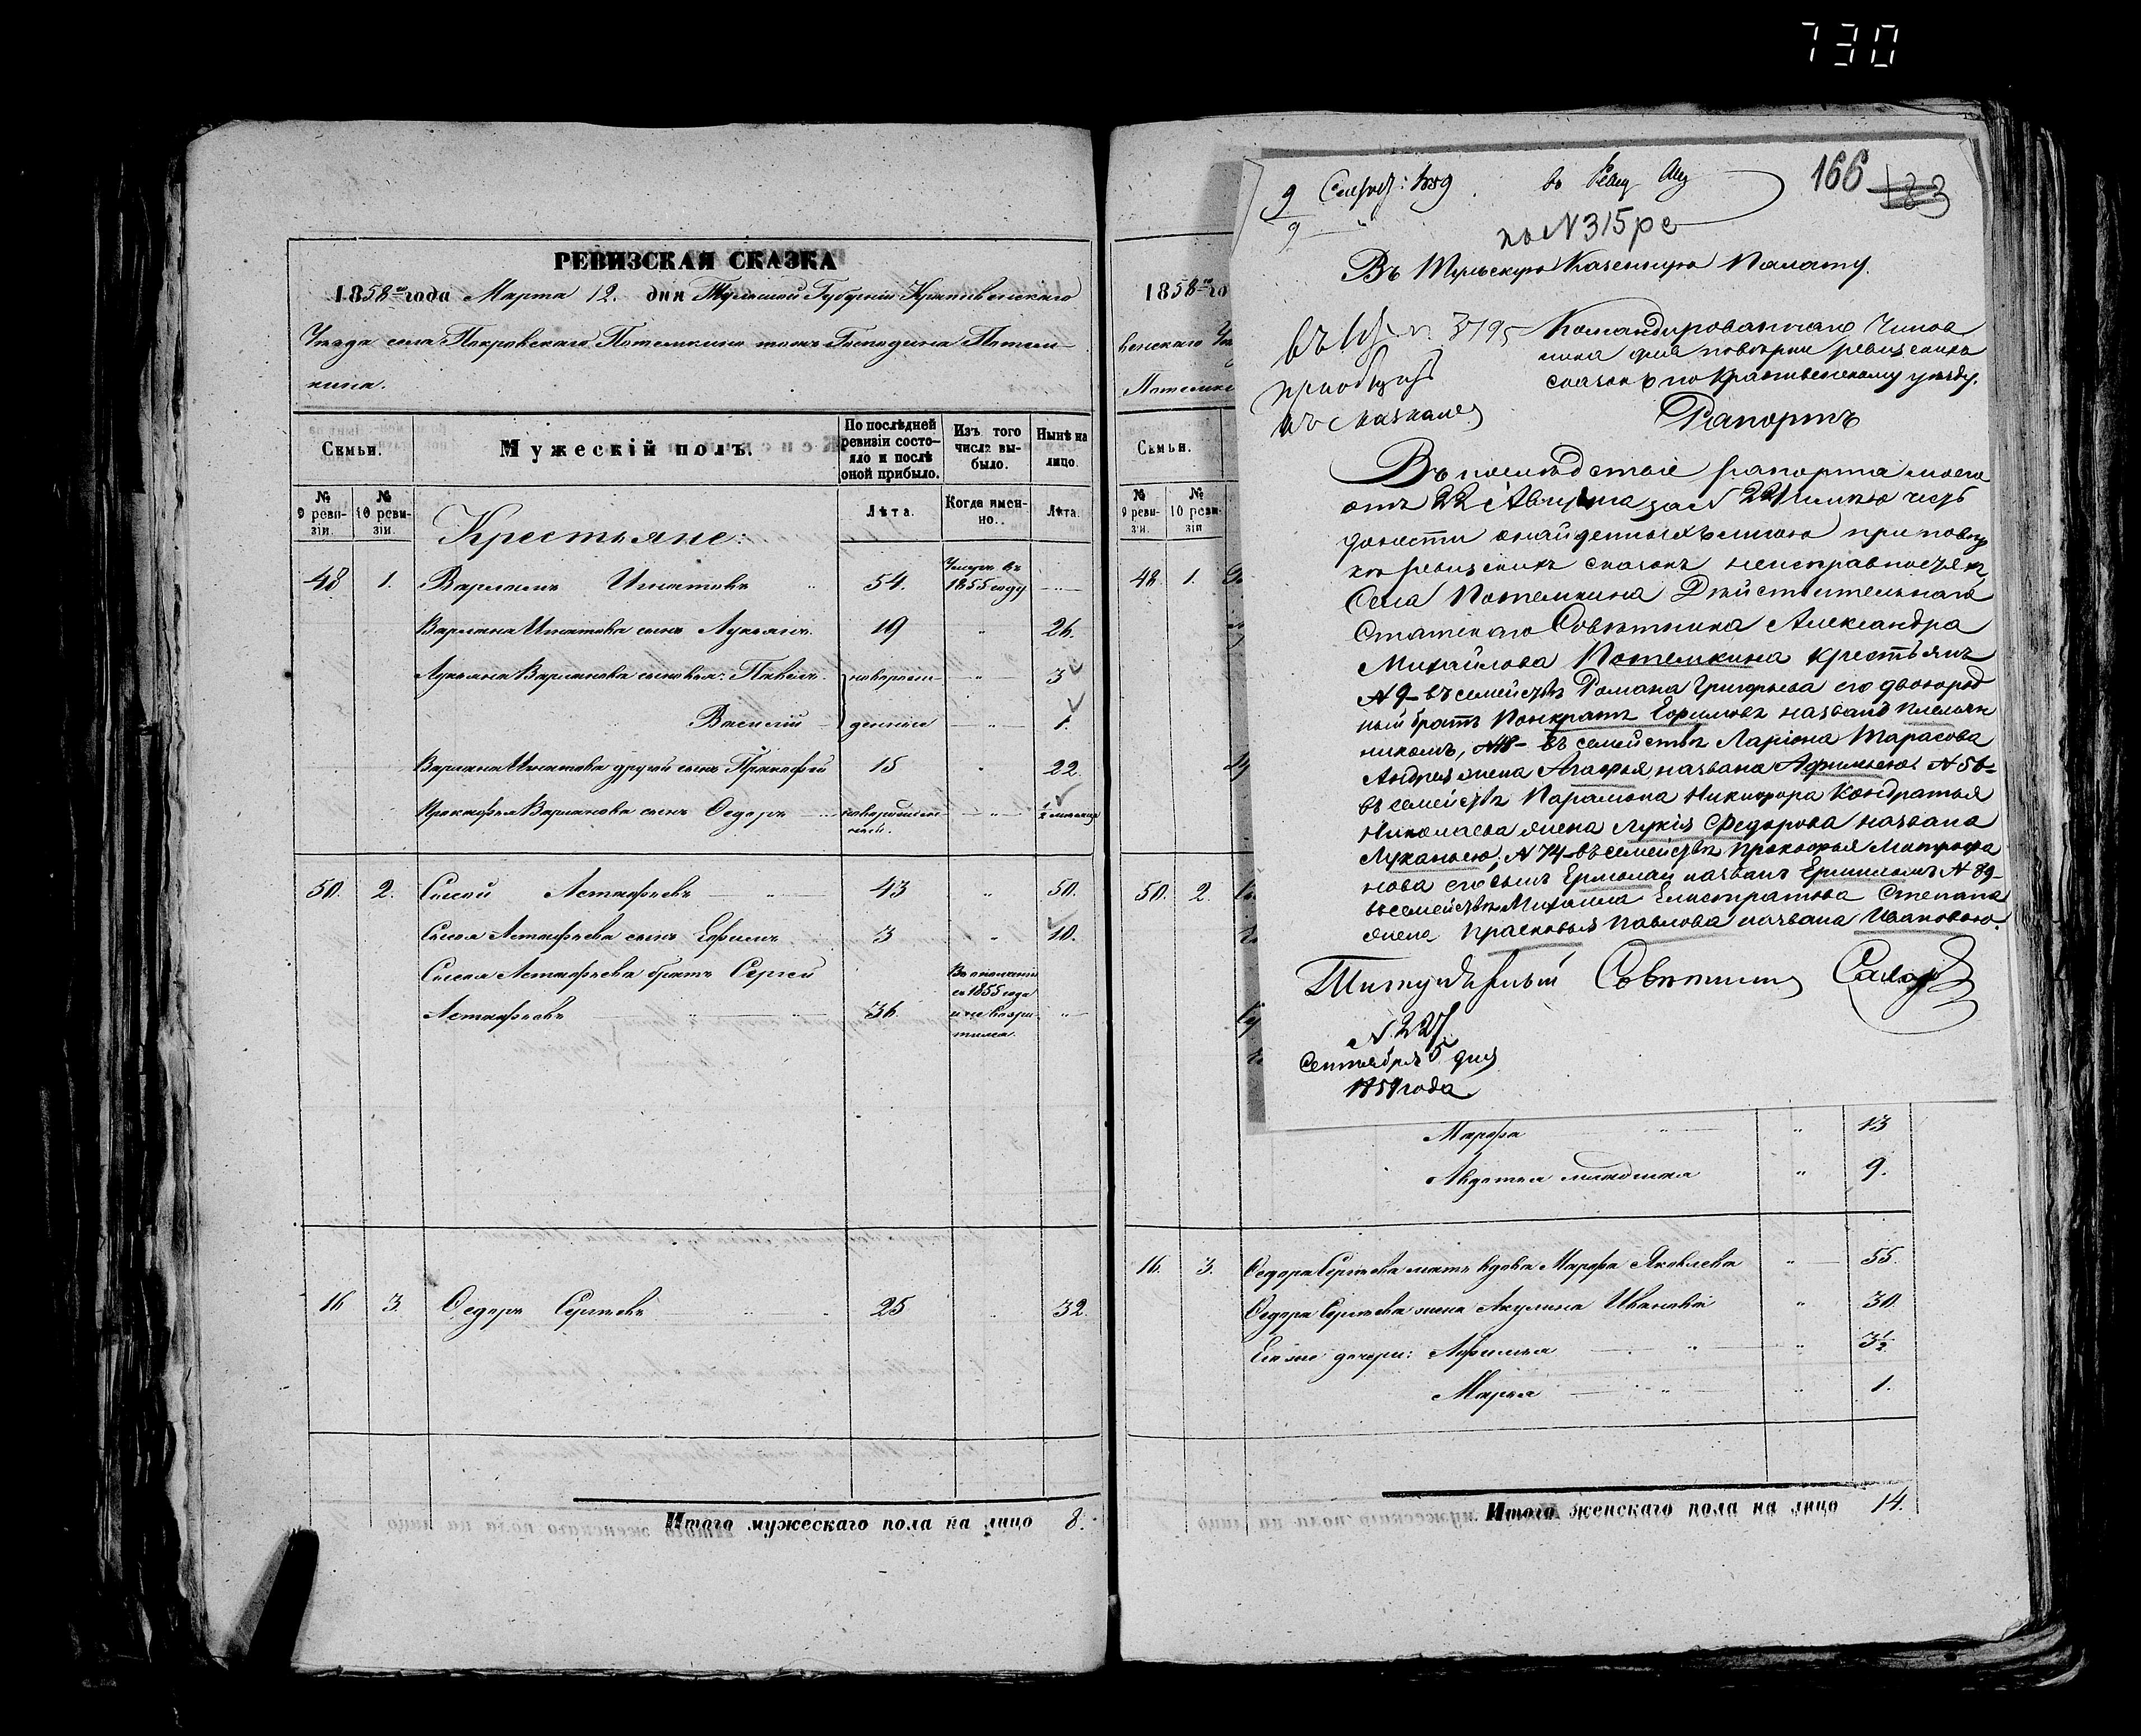 730
РЕВИЗСКАЯ СКАЗКА
1858го года Марта 12. дня Тульской Губерніи Крапивенскаго
Уѣзда села Покровскаго Потемкино тожъ Господина Потем-
кина.
Семьи.
Мужескій полъ.
По послѣдней ревизіи состояло и послѣ оной прибыло.
Изъ того числа выбыло.
Нынѣ на лицо.
№ 9 ревизіи.
№ 10 ревизіи.
Крестьяне:
Лѣта.
Когда именно.
Лѣта.
48 1. Варламъ Игнатовъ 54. Умеръ въ 1855 году
Варлама Игнатова сынъ Лукьянъ 19 26.
Лукьяна Варламова сыновья: Павелъ новорож- 3
Василій денные 1.
Варлама Игнатова другой сынъ Прокофій 15 22.
Прокофья Варламова сынъ Ѳедоръ новорожден-ный. 1/2 месяца
50. 2. Сысой Астафьевъ 43 50.
Сысоя Астафьева сынъ Ефимъ 3 10.
Сысоя Астафьева братъ Сергей
Астафьевъ 36. Въ ополченіи съ 1855 года и не возвратился
16 3. Ѳедоръ Сергѣевъ 25 32.
Итого мужескаго пола на лицо 8.
1858го го
венскаго Уѣ
Потемки
Семьи.
№ 9 ревизіи.
№ 10 ревизіи
48. 1.
50. 2.
9 Сентяб: 1859. 166 183
по N 315 ре
Въ Тульскую Казенную Палату.
3795
приобщить
къ сказкамъ
Командированнаго Чинов
ника для повѣрки ревизскихъ
сказокъ по Крапивенскому уѣзду.
Рапортъ
Въ послѣдствіе рапорта моего
отъ 22 Августа за N 221 имѣю честь
донести о найденныхъ мною при повѣр
кѣ ревизскихъ сказокъ неисправностяхъ
Села Потемкина Дѣйствительнаго
Статскаго Совѣтника Александра
Михайлова Потемкина крестьянъ
N 9 - въ семействѣ Романа Григорьева его двоюрод
ный братъ Понкратъ Ефимовъ названъ племян
никомъ, N 48 - въ семействѣ Ларіона Тарасова
Андрея жена Агафья названа Афимьею N 56 -
въ семействѣ Парамона Никифора Кондратья
Николаева жена Лукія Федорова названа
Луканьею, N 74 - въ семействѣ Прокофья Митрофа
нова его сынъ Ермолай названъ Ермиломъ N 89 -
въ семействѣ Михаила Елистратова Степана
жена Прасковья Павлова названа Ивановою.
Титулярный Совѣтникъ
N. 227.
Сентября 5 дня
1859 года
Марфа 13
Авдотья младшая 9.
16. 3. Ѳедора Сергѣева мать вдова Марфа Яковлева 55.
Ѳедора Сергѣева жена Акулина Иванова 30.
Ево же дочери: Афимья 3 1/2
Марья 1.
Итого женскаго пола на лицо 14.